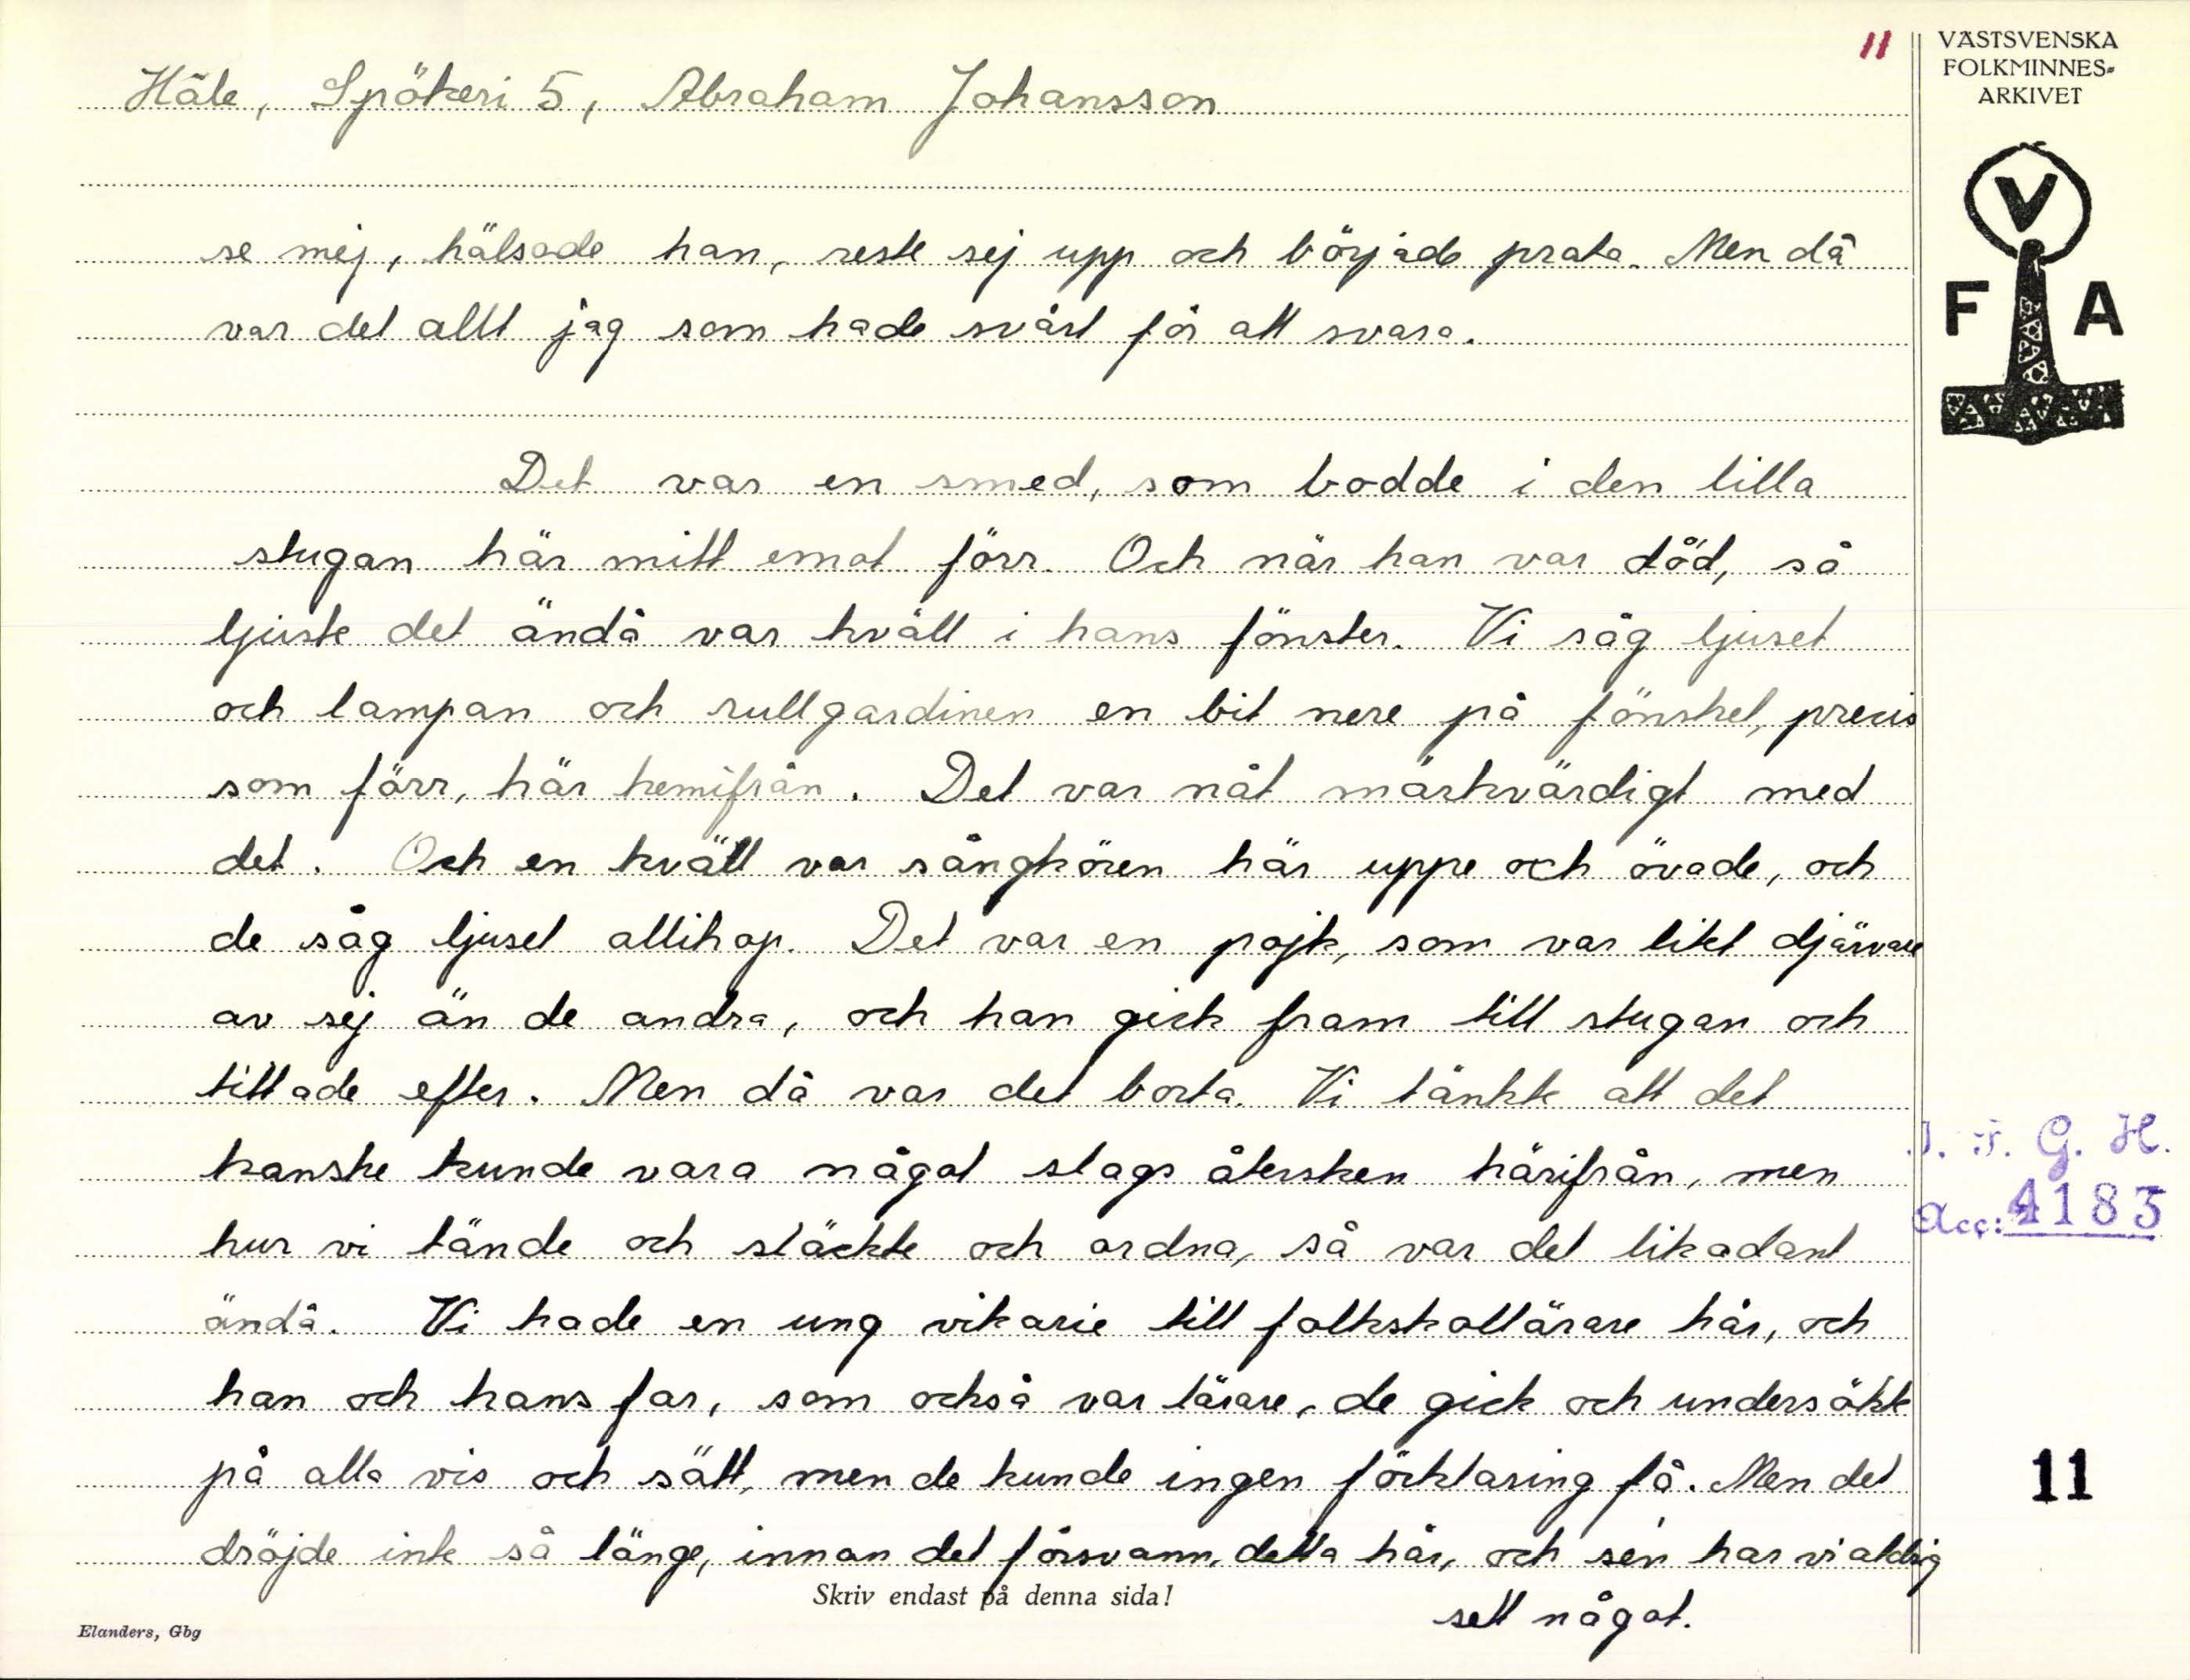 11
VÄSTSVENSKA
FOLKMINNES=
ARKIVET
Håle, Spökeri 5, Abraham Johansson
V
F A
se mej, hälsade han, reste sej upp och började prata. Men då
var det allt jag som hade svårt för att svara.
Det var en smed, som bodde i den lilla
stugan här mitt emot förr. Och när han var död, så
ljuste det ändå var kväll i hans fönster. Vi såg ljuset
och lampan och rullgardinen en bit nere på fönstret, precis
som förr, här hemifrån. Det var nåt märkvärdigt med
det. Och en kväll var sångkören här uppe och övade, och
de såg ljuset allihop. Det var en pojk, som var litet djärvare
av sej än de andra, och han gick fram till stugan och
tittade efter. Men då var det borta. Vi tänkte att det
kanske kunde vara något slags återsken härifrån, men
hur vi tände och släckte och ordna, så var det likadant
ändå. Vi hade en ung vikarie till folkskollärare här, och
han och hans far, som också var lärare, de gick och undersökte
på alla vis och sätt, men de kunde ingen förklaring få. Men det
dröjde inte så länge, innan det försvann, detta här, och sen har vi aldrig
sett något.
I. F. G. H.
Acc: 4183
11
Skriv endast på denna sida!
Elanders, Gbg